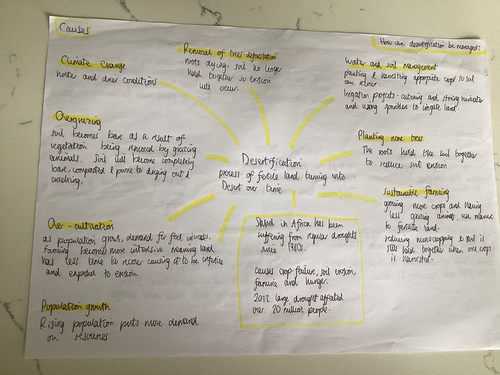 Causes
Climate Change
hotter and drier conditions
Removal of trees/deforestation
roots dying, soil no longer
held together so erosion
will occur.
How can desertification be managed?
Water and soil management
planting & harvesting appropriate crops so soil
can
Irrigation projects - and storing rainwater
and using to irrigate land.
Overgrazing
soil becomes bare as a result of
vegetation being removed by grazing
animals. Soil will become completely
bare, compacted & prone to drying out &
cracking.
Planting more trees
The roots hold the soil together
to reduce soil erosion
Desertification
process of fertile land turning into
Desert over time.
Sustainable farming
growing more crops and having
less grazing animals, use manure
to fertilise land.
reducing & soil is
still held together when one crop
is harvested.
Over-cultivation
as population grows, demand for food increases.
Farming becomes more intensive meaning land
has less time to recover causing it to be infertile
and exposed to erosion.
in Africa has been
suffering from regular droughts
since 1980.
causes crop failure, soil erosion,
famine and hunger.
large drought affected
over 20 million people.
Population growth
Rising population puts more demand
on resources